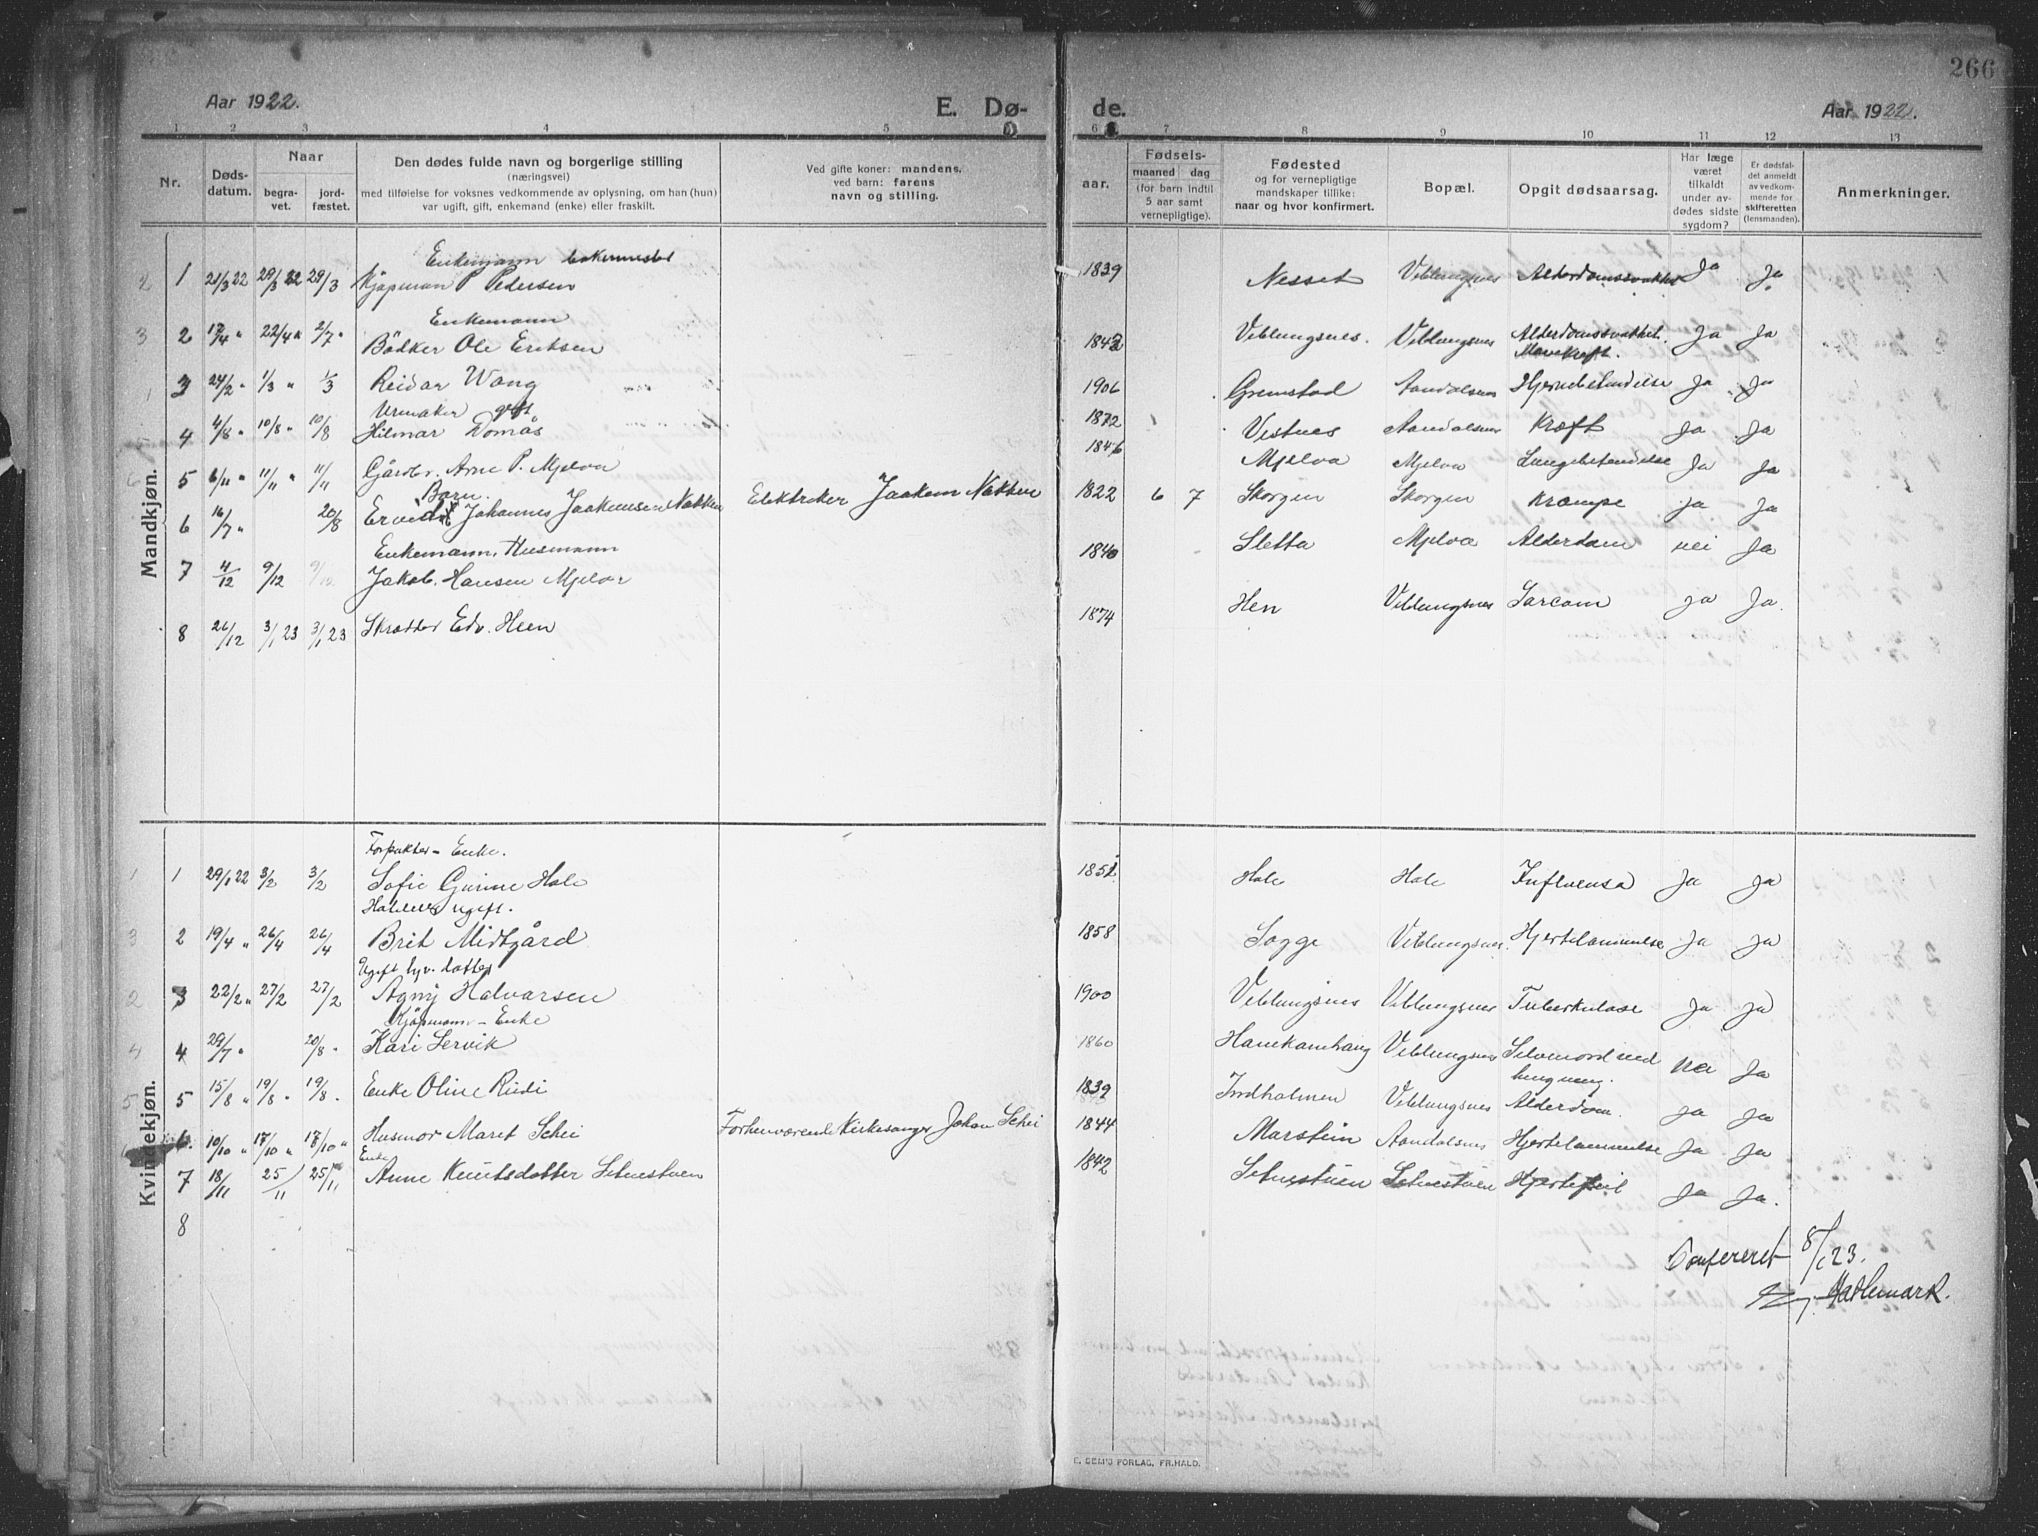 266
Aar 1922.
E. Dø-
de.
Aar 1922.
1 2 3 4 5 6 7 8 9 10 11 12 13
Nr.
Døds-
datum.
Naar
begra-
vet.
jord-
fæstet.
Den dødes fulde navn og borgerlige stilling
(næringsvei)
med tilføielse for voksnes vedkommende av oplysning, om han (hun)
var ugift, gift, enkemand (enke) eller fraskilt.
Ved gifte koner: mandens,
ved barn: farens
navn og stilling.
aar.
Fødsels-
maaned dag
(for barn indtil
5 aar samt
vernepligtige).
Fødested
og for vernepligtige
mandskaper tillike:
naar og hvor konfirmert.
Bopæl.
Opgit dødsaarsag.
Har læge
været
tilkaldt
under av-
dødes sidste
sygdom?
Er dødsfal-
det anmeldt
av vedkom-
mende for
skifteretten
(lensmanden).
Anmerkninger.
Mandkjøn.
Enkemann
2 1 21/3 22 29/3 22 29/3 Kjøpman P Pedersen 1839 Nesset Veblungsnes Alderdomssvakhet Ja Ja
Enkemann
3 2 17/4 " 22/4 " 2/7 " Bödker Ole Eriksen 1842 Veblungsnes. Veblungsnes Alderdomssvakhet. Ja Ja
Mavekreft.
1 3 24/2 " 1/3 " 1/3 Reidar Wang 1906 Grimstad Aandalsnes Hjernebetendelse Ja Ja
Urmaker gift.
4 4/8 " 10/8 " 10/8 Hilmar Domås 1872 Vestnes Aandalsnes Kræft Ja Ja
5 6/11 " 11/11 " 11/11 Gårdbr. Arne P. Mjelva 1846 Mjelva Mjelva Lungebetendelse Ja Ja
Barn.
6 16/7 " 20/8 Johannes Jaakemsen Nakken Elektriker Jaakem Nakken 1822 6 7 Skorgen Skorgen Krampe ja Ja
Enkemann, Husmann
7 4/12 9/12 9/12 Jakob Hansen Mjelva 1840 Sletta Mjelva Alderdom nei Ja
8 26/12 3/1 23 3/1 23 Skrædder Edv. Heen 1874 Hen Veblungsnes Sarcom ja Ja.
Kvindekjøn.
Forpakter - Enke.
1 1 29/1 22 3/2 3/2 Sofie Gurine Hole 1851 Hole Hole Influensa Ja Ja
ugift.
3 2 19/4 " 26/4 26/4 Brit Midtgård 1858 Sogge Veblungsnes. Hjertelammelse Ja Ja
Ugift datter
2 3 22/2 " 27/2 27/2 Agny Halvarsen 1900 Veblungsnes Veblungsnes Tuberkulose Ja Ja
Kjøpmann - Enke
4 4 29/7 " 20/8 " Kari Servik 1860 Hanekamhaug Veblungsnes Selvmord ved nei Ja
hengning.
5 5 15/8 " 19/8 " 19/8 . Enke Oline Rudi 1839 Indholmen Veblungsnes Alderdom. Ja Ja
6. 10/10 " 17/10 " 17/10 " Husmor Marit Schei Forhenværende Kirkesanger Johan Schei 1844 Marstein Aandalsnes Hjertelammelse Ja Ja
Enke
7 18/11 25/11 25/11 Anne Knutsdatter Setnestuen 1842 Setnestuen Setnestuen Hjertefeil Ja Ja.
8
Confereret 8/1 23.
E. SEM'S FORLAG, FR.HALD.